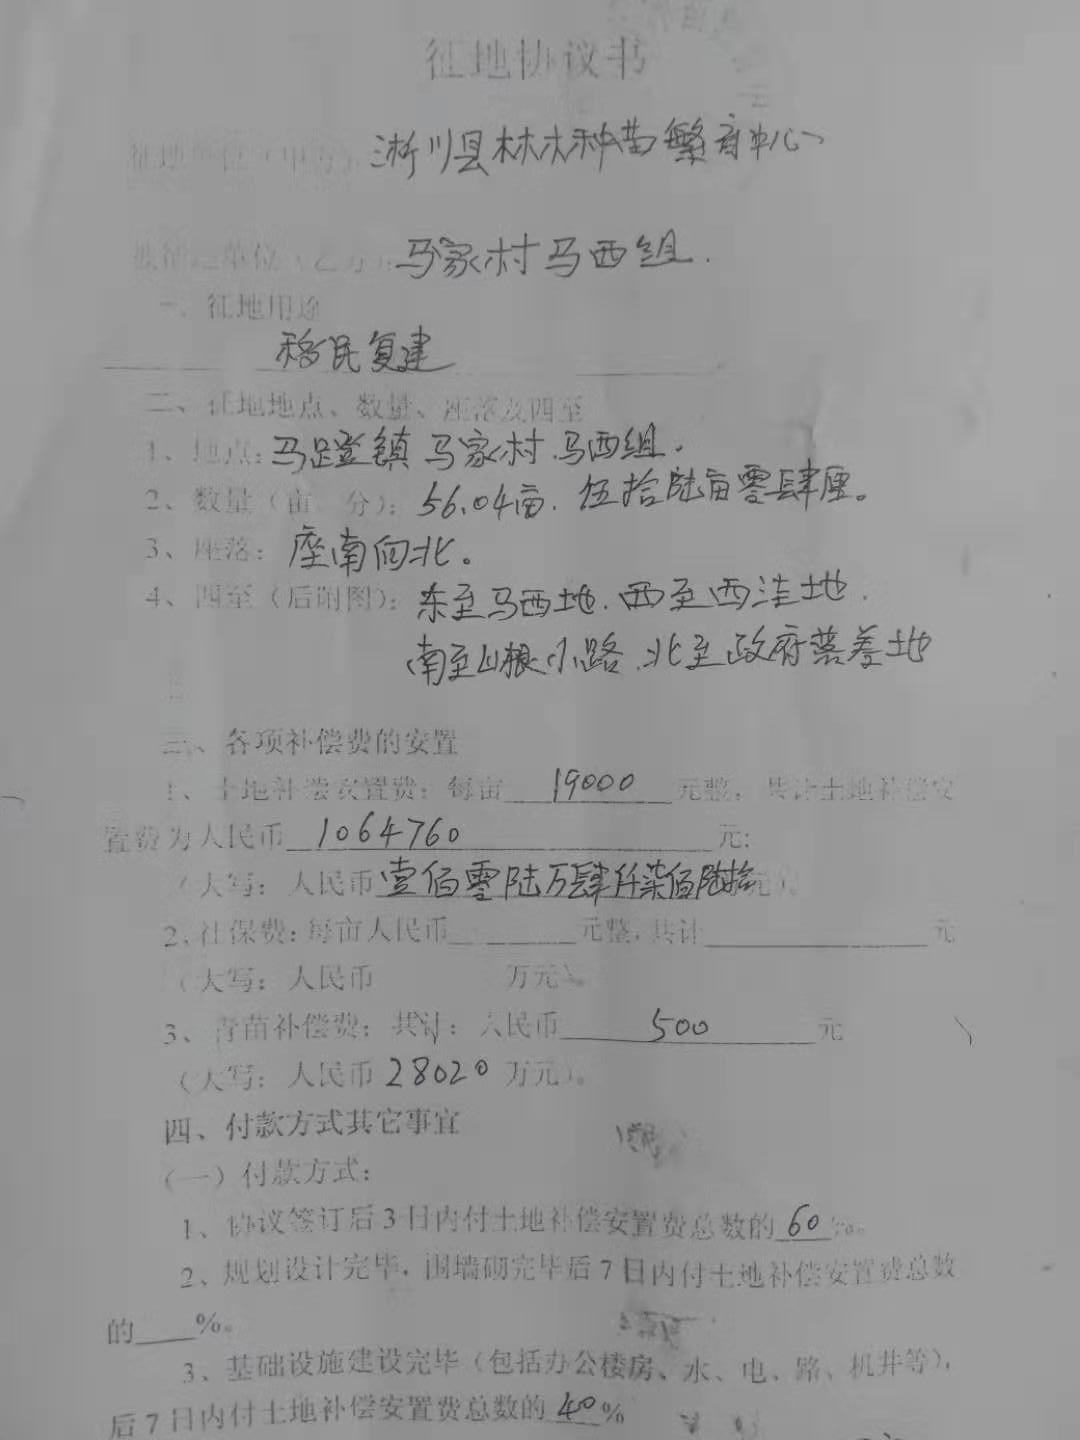 征地协议书
征地单位（甲方）：淅川县林木种苗繁育中心
被征地单位（乙方）：马家村马西组.
一、征地用途
移民复建
二、征地地点、数量、座落及四至
1、地点：马蹬镇马家村.马西组.
2、数量（亩 分）：56.04亩. 伍拾陆亩零肆厘。
3、座落：座南向北。
4、四至（后附图）：东至马西地. 西至西洼地.
南至山根小路.北至政府落差地
三、各项补偿费的安置
1、土地补偿安置费：每亩 19000 元整，共计土地补偿安
置费为人民币 1064760 元；
（大写：人民币壹佰零陆万肆仟柒佰陆拾元）。
2、社保费：每亩人民币____元整，共计____元
（大写：人民币 万元）。
3、青苗补偿费：共计：人民币 500 元
（大写：人民币 28020 万元）。
四、付款方式其它事宜
（一）付款方式：
1、协议签订后3日内付土地补偿安置费总数的 60 %。
2、规划设计完毕，围墙砌完毕后7日内付土地补偿安置费总数
的____%。
3、基础设施建设完毕（包括办公楼房、水、电、路、机井等），
后7日内付土地补偿安置费总数的 40 %